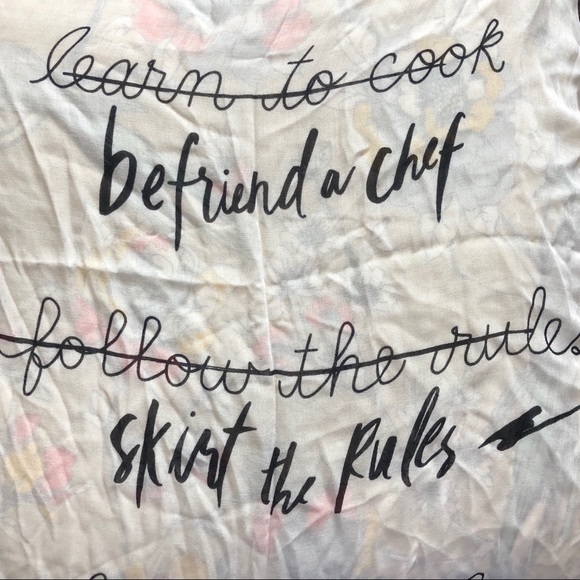 learn to cook
befriend a chef
follow the rules
skirt the rules